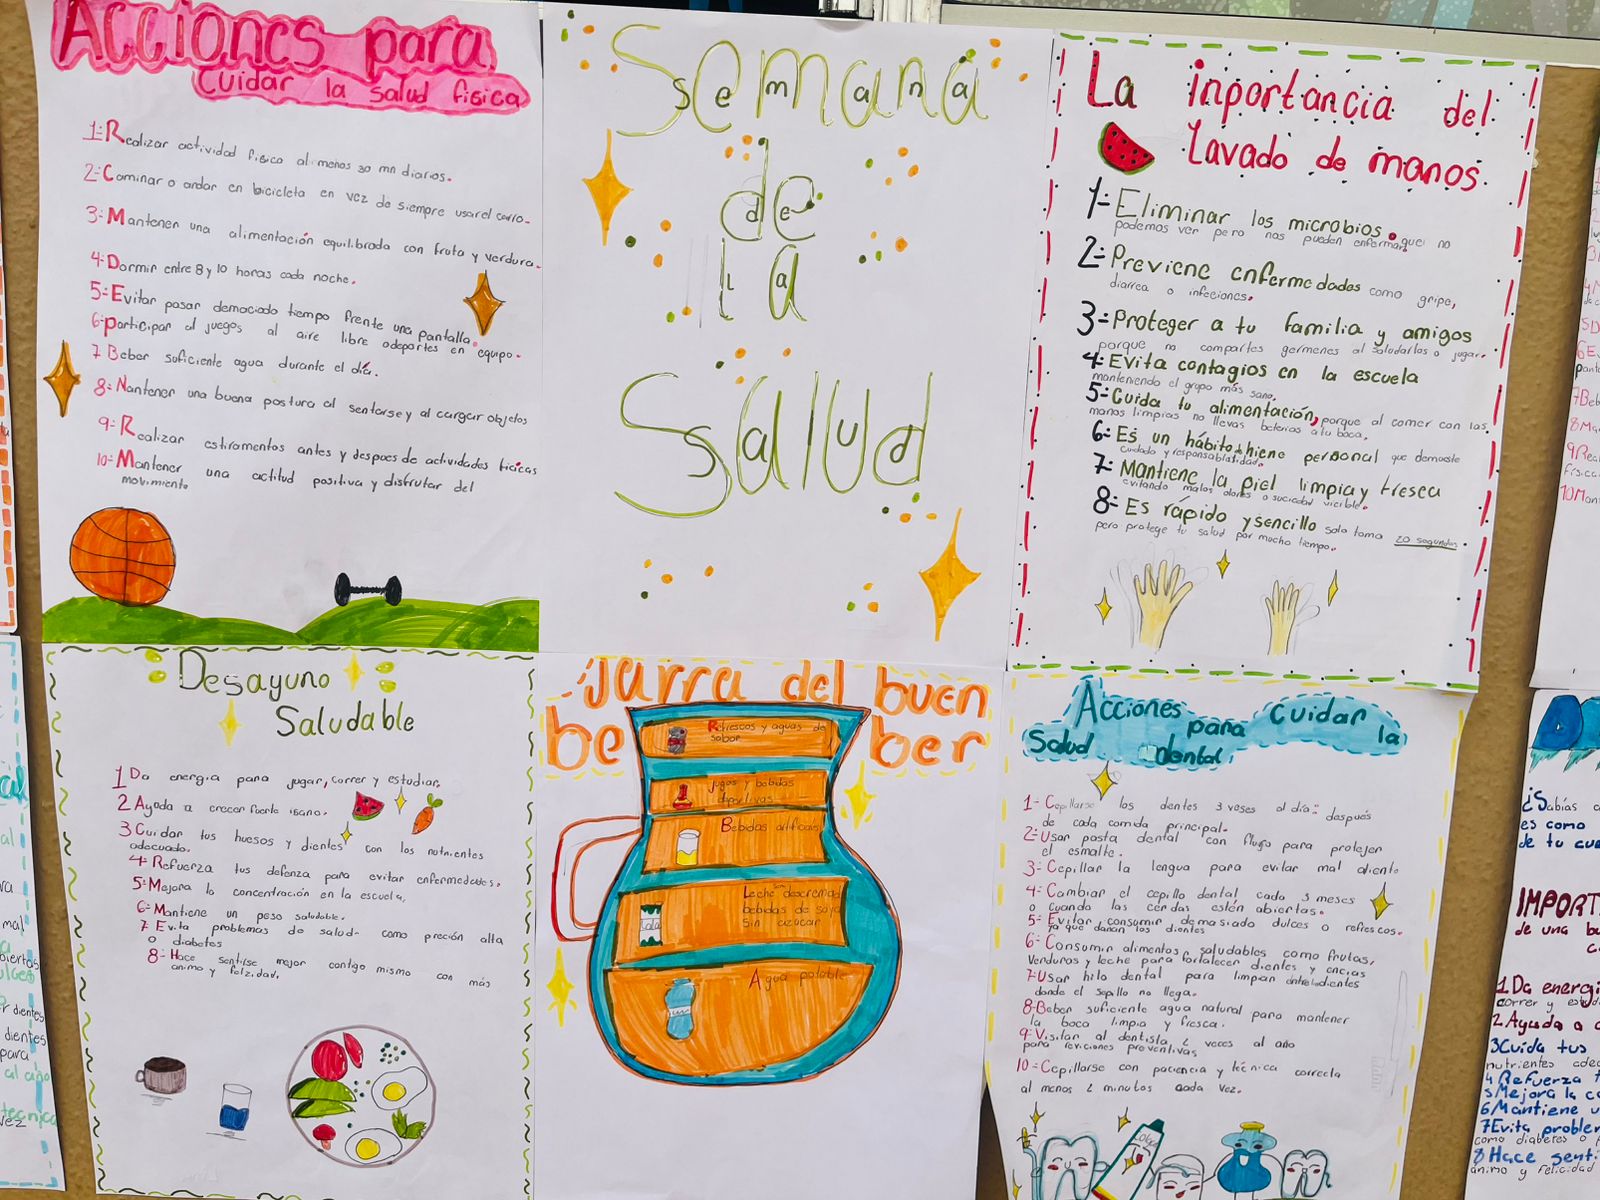 Acciones para
Cuidar la salud fisica
1-Realizar actividad fisica al menos 30 mn diarios.
2-Caminar o andar en bicicleta en vez de siempre usar el carro.
3-Mantener una alimentación equilibrada con fruta y verdura.
4-Dormir entre 8 y 10 horas cada noche.
5-Evitar pasar demaciado tiempo frente una pantalla.
6-participar al juegos al aire libre o deportes en equipo.
7 Beber suficiente agua durante el día.
8-Mantener una buena postura al sentarse y al cargar objetos
9-Realizar estiramentos antes y despues de actividades ficicas
10-Mantener una actitud positiva y disfrutar del
movimiento
Semana
de
la
Salud
La inportancia del
Lavado de manos
1-Eliminar los microbios. que no
podemos ver pero nos pueden enfermar.
2-Previene enfermedades como gripe,
diarrea o infeciones.
3-Proteger a tu familia y amigos
porque no compartes germenes al saludarlos o jugar.
4-Evita contagios en la escuela
manteniendo el grupo más sano.
5-Cuida tu alimentación, porque al comer con las
manos limpias no llevas a tu boca.
6-Es un hábito hiene personal que demueste
cuidado y
7-Mantiene la piel limpia y fresca
evitando malos olores o suciedad vicible.
8-Es rápido y sencillo solo toma 20 segundos
pero protege tu salud por mucho tiempo.
Desayuno
Saludable
1 Da energia para jugar, correr y estudiar.
2 Ayuda a crecer fuerte isano.
3 Cuidar tus huesos y dientes con los nutrientes
adecuado.
4-Refuerza tus defenza para evitar enfermedades.
5-Mejora la concentración en la escuela,
6-Mantiene un peso saludable.
7 Evita problemas de salud- como preción alta
o diabetes
8-Hace sentirse mejor contigo mismo con más
animo y felizidad.
jarra del buen
be ber
Refrescos y aguas de
sabor
jugos y bebidas
deportivas
Bebidas artificiales
Leche descremada
bebidas de soya
Sin azucar
Agua potable
Acciones para cuidar la
Salud dental
1-Cepillarse los dentes 3 veses al día: después
de cada comida principal.
2-Usar pasta dental con fluor para protejer
el esmalte.
3-Cepillar la lengua para evitar mal aliento
4-Cambiar el cepillo dental cada 3 meses
o cuando las cerdas estén abiertas.
5-Evitar consumir demasiado dulces o refrescos.
ya que dañan los dientes
6-Consumir alimentos saludables como frutas,
verduras y leche para fortalecer dientes y encias
7-Usar hilo dental para limpiar entre dientes
donde el sepillo no llega.
8-Beber suficiente agua natural para mantener
la boca limpia y fresca.
9-Visitar al dentista 2 veces al año
para reviciones preventivas
10-Cepillarse con paciencia y técnica correcta
al menos 2 minutos cada vez.
¿Sabias
es como
de tu cue
IMPORT
de una bu
1 Da energi
correr y estud
2 Ayuda a
3 Cuida tus
nutrientes adec
4 Refuerza
5 Mejora la co
6 Mantiene u
7 Evita problem
como diabetes o
8 Hace senti
animo y felicidad